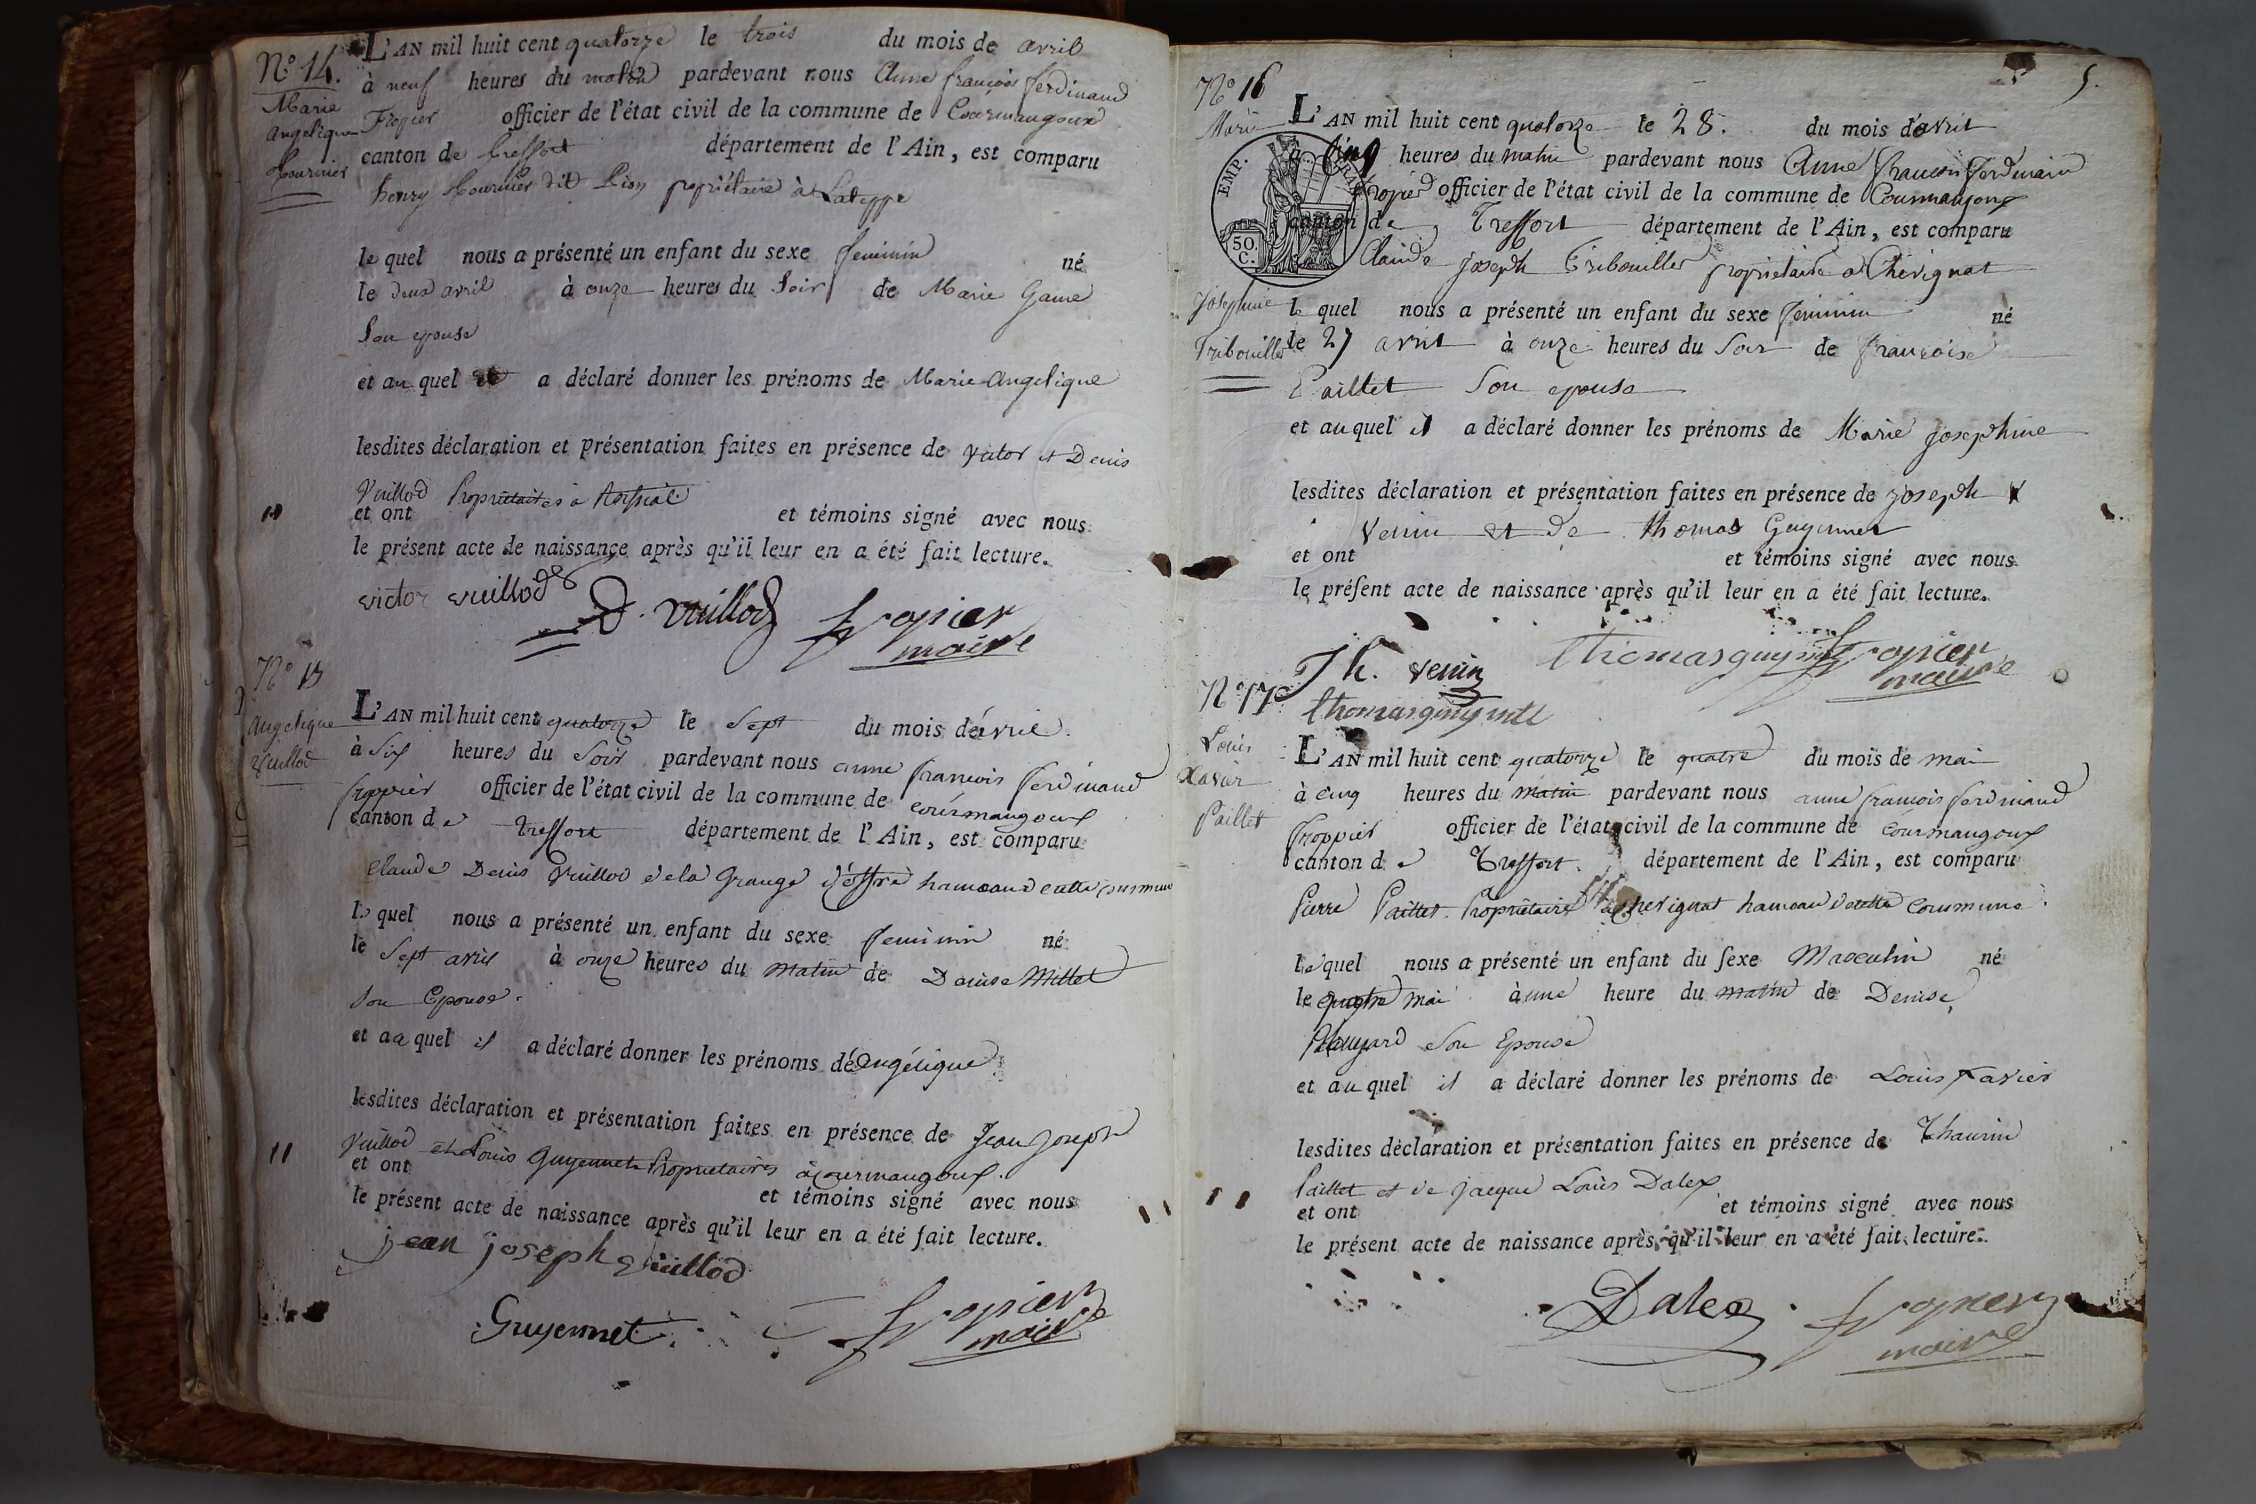 N° 14.
Marie
angelique
L'AN mil huit cent quatorze le trois du mois de avril
à neuf heures du matin pardevant nous Anne françois ferdinand
officier de l'état civil de la commune de Courmangoux
canton de treffort département de l'Ain, est comparu
henry dit propriétaire à
le quel nous a présenté un enfant du sexe feminin né
le deux avril à onze heures du soir de Marie
son epouse
et au quel a déclaré donner les prénoms de Marie Angelique
lesdites déclaration et présentation faites en présence de victor et Denis
Vuillod Propriétaires à
et ont et témoins signé avec nous
le présent acte de naissance après qu'il leur en a été fait lecture.
victor vuillod D. vuillod fropier
maire
N° 15
Angelique
Vuillod
L'AN mil huit cent quatorze le Sept du mois d'avril
à Six heures du Soir pardevant nous anne francois ferdinand
froppier officier de l'état civil de la commune de courmangoux
canton de treffort département de l'Ain, est comparu
Claude Denis Vuillod de la Grange hameau de cette commune
le quel nous a présenté un enfant du sexe feminin né
le Sept avril à onze heures du matin de Denise Millet
son Epouse.
et au quel il a déclaré donner les prénoms de angélique
lesdites déclaration et présentation faites en présence de Jean Joseph
Vuillod et Louis Guyennet Propriétaires à courmangoux.
et ont et témoins signé avec nous
le présent acte de naissance après qu'il leur en a été fait lecture.
11
jean joseph vuillod
Guyennet fropier
maire
5.
N° 16
Marie
Josephine
Tribouillet
L'AN mil huit cent quatorze le 28. du mois d'avril
à cinq heures du matin pardevant nous Anne francois ferdinand
fropier officier de l'état civil de la commune de Courmangoux
canton de Treffort département de l'Ain, est comparu
EMP.
50.
C.
Claude Joseph Tribouillet propriétaire à Chevignat
le quel nous a présenté un enfant du sexe feminin né
le 27 avril à onze heures du Soir de françoise
Paillet Son epouse
et au quel il a déclaré donner les prénoms de Marie Josephine
lesdites déclaration et présentation faites en présence de Joseph
Venin et de thomas Guyennet
et ont et témoins signé avec nous
le présent acte de naissance après qu'il leur en a été fait lecture.
Jh. venin fropier
maire
N° 17
Louis
Xavier
Paillet
L'AN mil huit cent quatorze le quatre du mois de mai
à cinq heures du matin pardevant nous anne francois ferdinand
froppier officier de l'état civil de la commune de courmangoux
canton de Treffort. département de l'Ain, est comparu
Pierre Paillet Propriétaire à chevignat hameau de cette commune.
le quel nous a présenté un enfant du sexe Masculin né
le quatre mai à une heure du matin de Denise
son Epouse
et au quel il a déclaré donner les prénoms de Louis Xavier
lesdites déclaration et présentation faites en présence de Thaurin
Paillet et de jacque Louis Dalex
et ont et témoins signé avec nous
le présent acte de naissance après qu'il leur en a été fait lecture.
Dalex fropier
maire